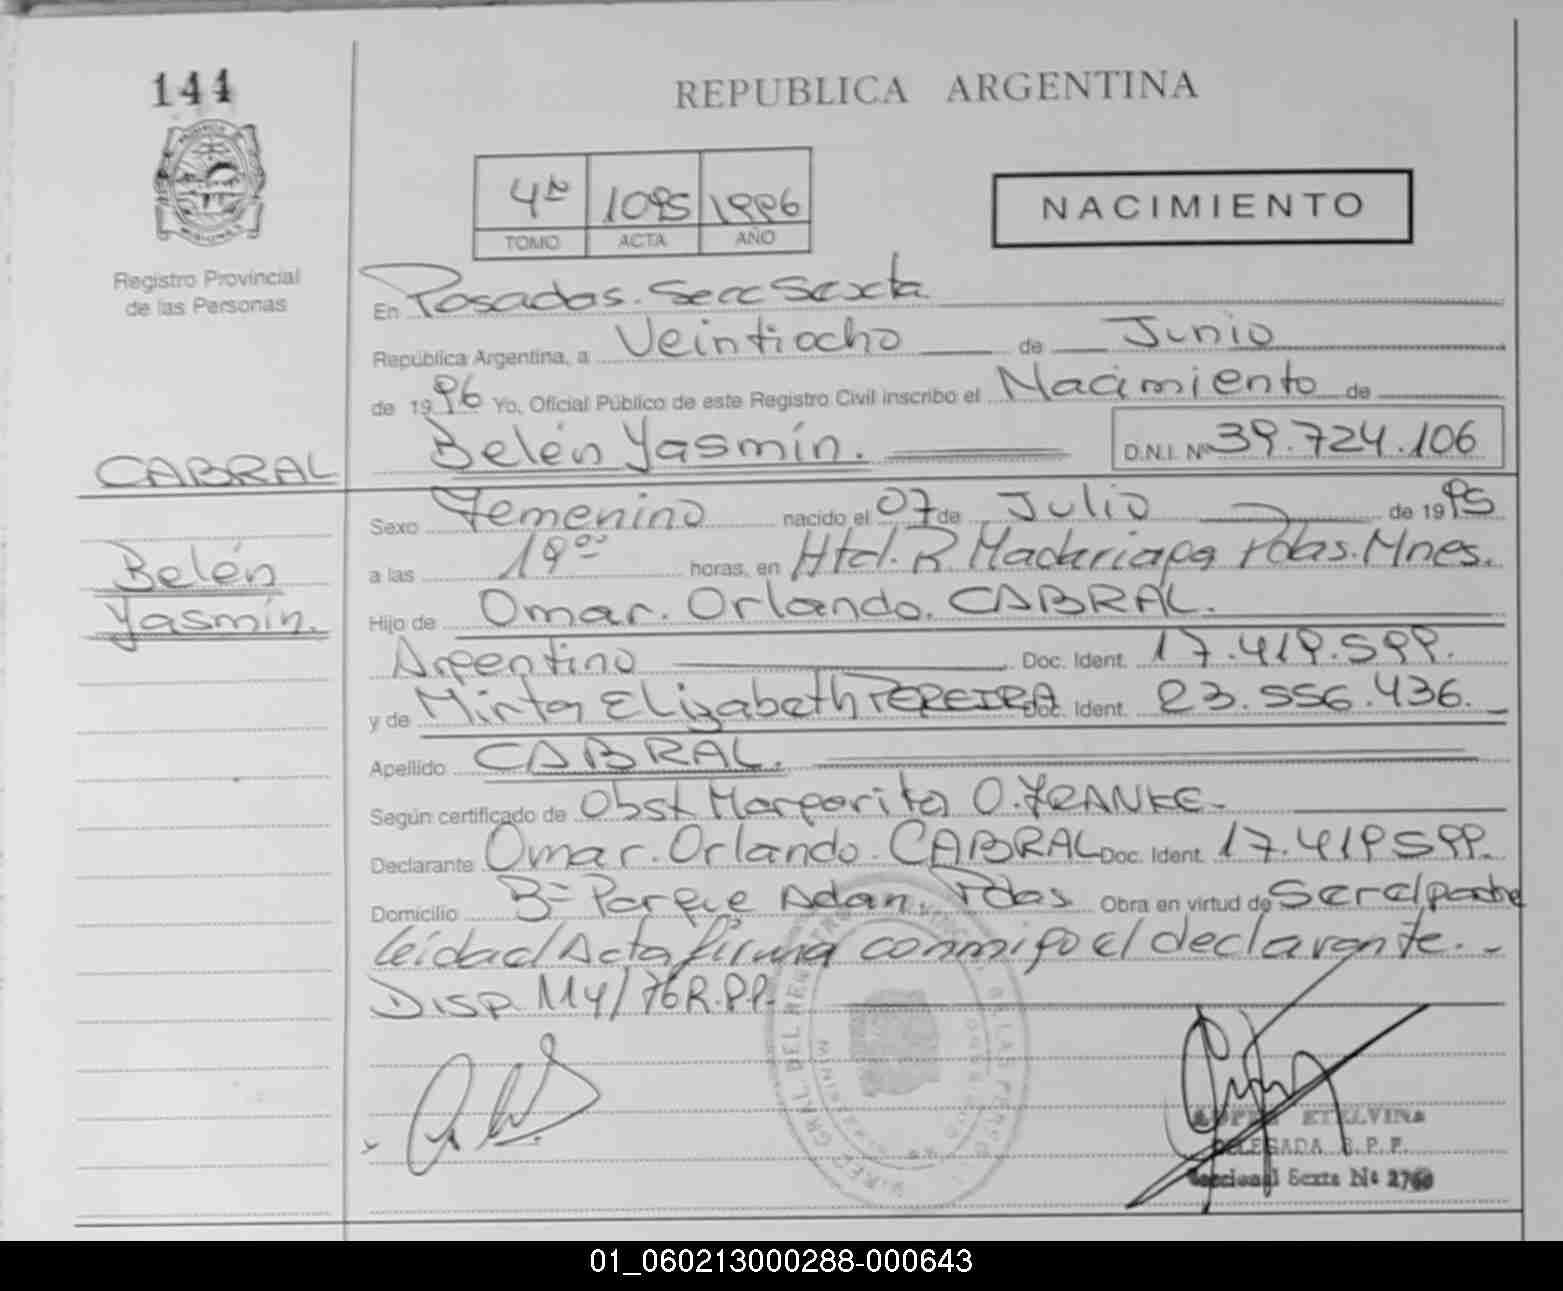 144
REPUBLICA ARGENTINA
4to 1095 1996
TOMO ACTA AÑO
NACIMIENTO
PROVINCIA DE
MISIONES
Registro Provincial
de las Personas
En Posadas. Secc Sexta
República Argentina, a Veintiocho de Junio
de 1996 Yo, Oficial Público de este Registro Civil inscribo el Nacimiento de
Belén Yasmín. D.N.I. Nº 39.724.106
CABRAL
Belén
Yasmín.
Sexo Femenino nacido el 07 de Julio de 1995
a las 19°° horas, en Htal. R. Madariaga Pdas. Mnes.
Hijo de Omar. Orlando. CABRAL.
Argentino Doc. Ident. 17.419.599.
y de Mirta Elizabeth PEREIRA Doc. Ident. 23.556.436.
Apellido CABRAL.
Según certificado de Obst Margarita O. FRANKE.
Declarante Omar. Orlando. CABRAL Doc. Ident. 17.419599.
Domicilio B= Parque Adan. Pdas Obra en virtud de Ser el padre
leida el Acta firma conmigo el declarante. -
Disp. 114/76 R.P.P.
ETELVINA
DELEGADA R.P.P.
Seccional Sexta Nº
01_060213000288-000643